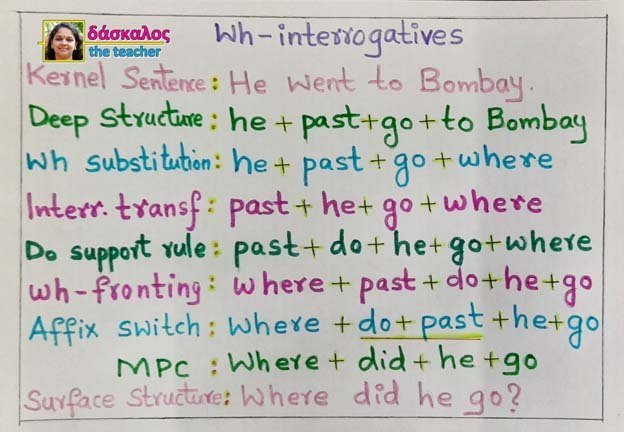 δάσκαλος
the teacher
Wh-interrogatives
Kernel Sentence: He went to Bombay.
Deep Structure: he + past+go+to Bombay
Wh substitution: he + past + go + where
Interr. transf: past + he + go + where
Do support rule: past + do + he+go+where
wh-fronting: where + past + do+he+go
Affix switch: where + do + past +he+go
MPC : Where + did + he + go
Surface Structure: Where did he go?